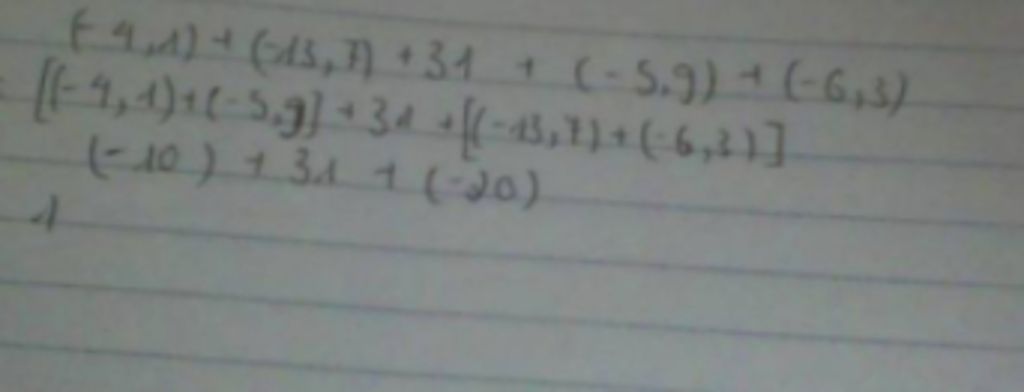 (-4,1) + (-13,7) + 31 + (-5,9) + (-6,3)
= [(-4,1) + (-5,9] + 31 + [(-13,7) + (-6,3)]
(-10) + 31 + (-20)
1